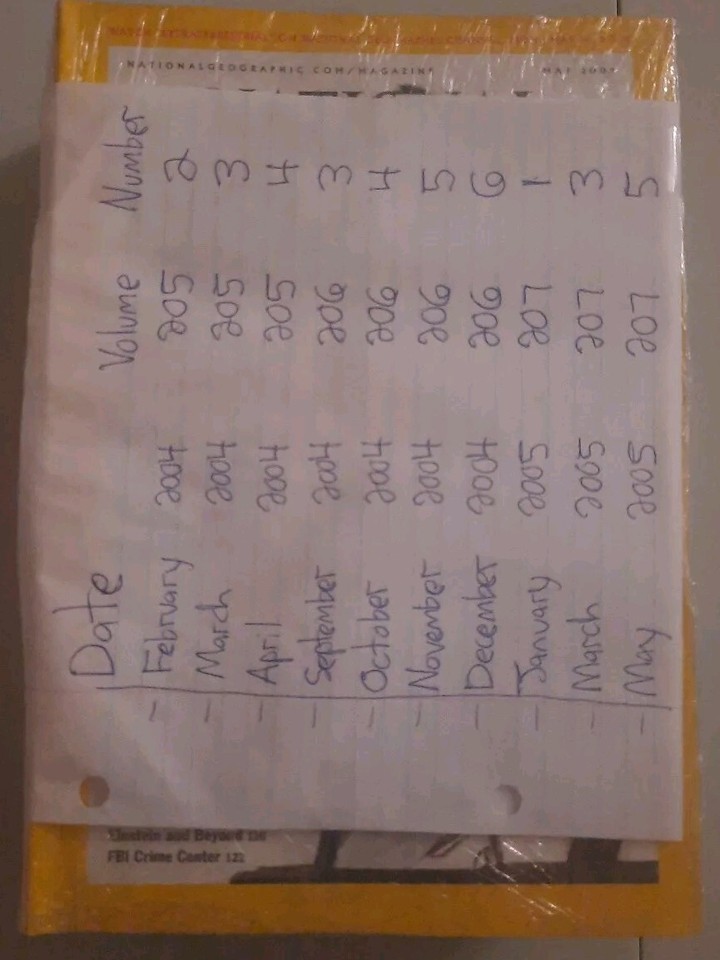 NATIONALGEOGRAPHIC.COM/MAGAZINE MAY 2005
Date Volume Number
- February 2004 205 2
- March 2004 205 3
- April 2004 205 4
- September 2004 206 3
- October 2004 206 4
- November 2004 206 5
- December 2004 206 6
- January 2005 207 1
- March 2005 207 3
- May 2005 207 5
Einstein and Beyond 110
FBI Crime Center 122